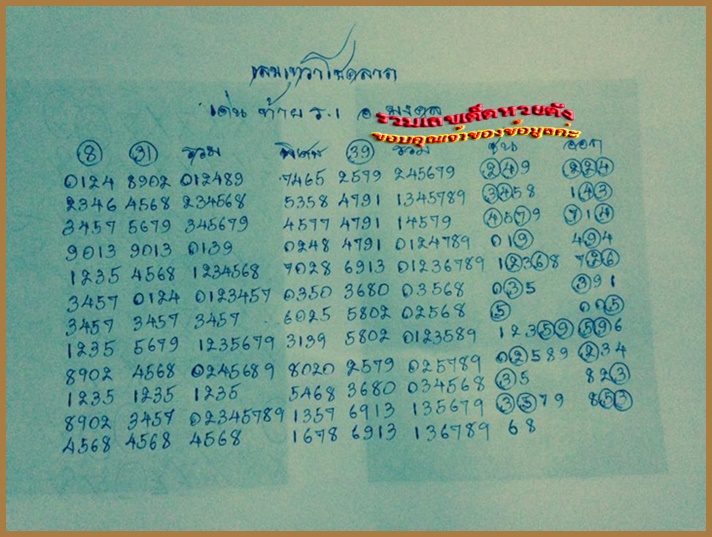 เด่น ท้าย ร.1
รวมเลขเด็ดหวยดัง
ขอบคุณเจ้าของข้อมูลค่ะ
8 31 รวม พิเศษ 39 รวม ชน ออก
0124 8902 012489 7465 2579 245679 249 224
2346 4568 234568 5358 4791 1345789 3458 143
3457 5679 345679 4577 4791 14579 4579 714
9013 9013 0139 0248 4791 0124789 019 494
1235 4568 1234568 7028 6913 01236789 12368 726
3457 0124 0123457 0350 3680 03568 035 391
3457 3457 3457 6025 5802 02568 5 005
1235 5679 1235679 3139 5802 0123589 12359 596
8902 4568 0245689 8020 2579 025789 02589 234
1235 1235 1235 5468 3680 034568 35 823
8902 3457 02345789 1357 6913 135679 3579 853
4568 4568 4568 1678 6913 136789 68